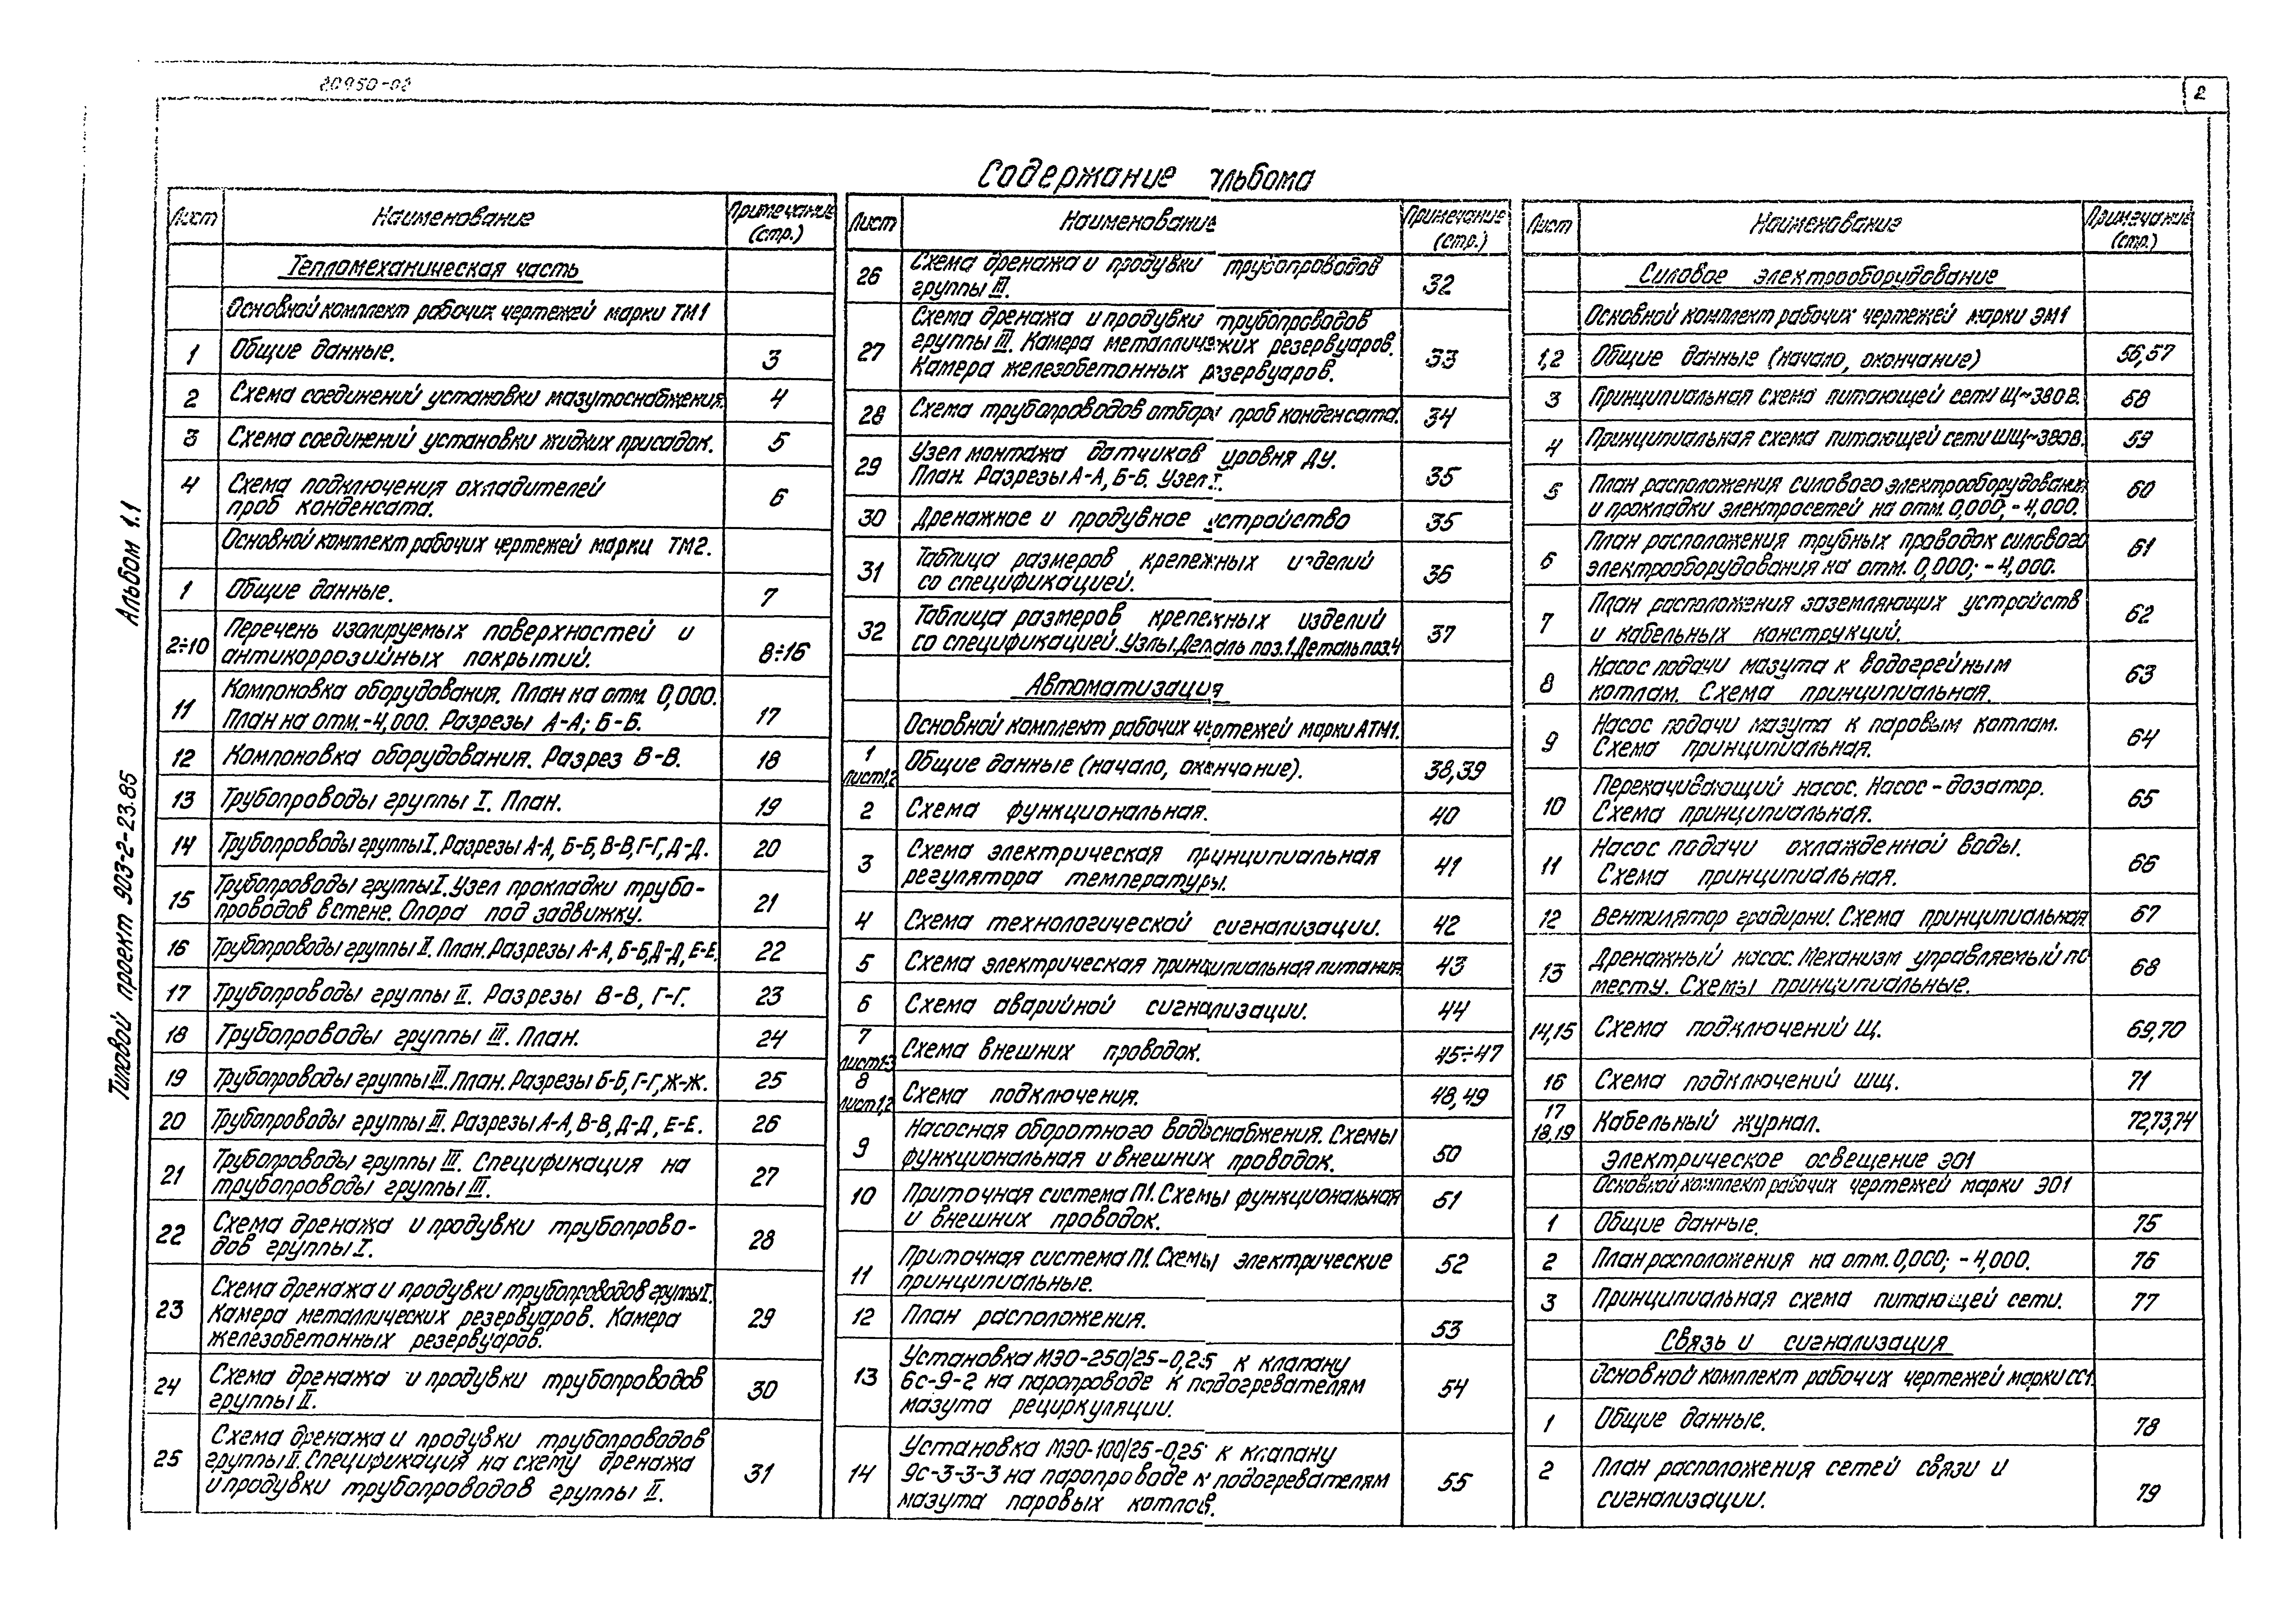 20950-02
2
Содержание альбома
Альбом 1.1
Типовой проект 903-2-23.85
Лист Наименование Примечание (стр.)
Тепломеханическая часть
Основной комплект рабочих чертежей марки ТМ1
1 Общие данные. 3
2 Схема соединений установки мазутоснабжения. 4
3 Схема соединений установки жидких присадок. 5
4 Схема подключения охладителей
проб конденсата. 6
Основной комплект рабочих чертежей марки ТМ2.
1 Общие данные. 7
2÷10 Перечень изолируемых поверхностей и
антикоррозийных покрытий. 8÷16
11 Компоновка оборудования. План на отм. 0,000.
План на отм.-4,000. Разрезы А-А; Б-Б. 17
12 Компоновка оборудования. Разрез В-В. 18
13 Трубопроводы группы I. План. 19
14 Трубопроводы группы I. Разрезы А-А, Б-Б, В-В, Г-Г, Д-Д. 20
15 Трубопроводы группы I. Узел прокладки трубо-
проводов в стене. Опора под задвижку. 21
16 Трубопроводы группы II. План. Разрезы А-А, Б-Б, Д-Д, Е-Е. 22
17 Трубопроводы группы II. Разрезы В-В, Г-Г. 23
18 Трубопроводы группы III. План. 24
19 Трубопроводы группы III. План. Разрезы Б-Б, Г-Г, Ж-Ж. 25
20 Трубопроводы группы III. Разрезы А-А, В-В, Д-Д, Е-Е. 26
21 Трубопроводы группы III. Спецификация на
трубопроводы группы III. 27
22 Схема дренажа и продувки трубопрово-
дов группы I. 28
23 Схема дренажа и продувки трубопроводов группы I.
Камера металлических резервуаров. Камера
железобетонных резервуаров. 29
24 Схема дренажа и продувки трубопроводов
группы II. 30
25 Схема дренажа и продувки трубопроводов
группы II. Спецификация на схему дренажа
и продувки трубопроводов группы II. 31
Лист Наименование Примечание (стр.)
26 Схема дренажа и продувки трубопроводов
группы III. 32
27 Схема дренажа и продувки трубопроводов
группы III. Камера металлических резервуаров.
Камера железобетонных резервуаров. 33
28 Схема трубопроводов отбора проб конденсата. 34
29 Узел монтажа датчиков уровня ДУ.
План. Разрезы А-А, Б-Б. Узел I. 35
30 Дренажное и продувное устройство 35
31 Таблица размеров крепежных изделий
со спецификацией. 36
32 Таблица размеров крепежных изделий
со спецификацией. Узлы. Деталь поз.1. Деталь поз.4 37
Автоматизация
Основной комплект рабочих чертежей марки АТМ1.
1 лист1,2 Общие данные (начало, окончание). 38,39
2 Схема функциональная. 40
3 Схема электрическая принципиальная
регулятора температуры. 41
4 Схема технологической сигнализации. 42
5 Схема электрическая принципиальная питания. 43
6 Схема аварийной сигнализации. 44
7 лист1-3 Схема внешних проводок. 45÷47
8 лист1,2 Схема подключения. 48,49
9 Насосная оборотного водоснабжения. Схемы
функциональная и внешних проводок. 50
10 Приточная система П1. Схемы функциональная
и внешних проводок. 51
11 Приточная система П1. Схемы электрические
принципиальные. 52
12 План расположения. 53
13 Установка МЭО-250/25-0,25 к клапану
6с-9-2 на паропроводе к подогревателям
мазута рециркуляции. 54
14 Установка МЭО-100/25-0,25 к клапану
9с-3-3-3 на паропроводе к подогревателям
мазута паровых котлов. 55
Лист Наименование Примечание (стр.)
Силовое электрооборудование
Основной комплект рабочих чертежей марки ЭМ1
1,2 Общие данные (начало, окончание) 56,57
3 Принципиальная схема питающей сети Щ~380 В. 58
4 Принципиальная схема питающей сети ШЩ~380В. 59
5 План расположения силового электрооборудования
и прокладки электросетей на отм. 0,000; -4,000. 60
6 План расположения трубных проводок силового
электрооборудования на отм. 0,000; -4,000. 61
7 План расположения заземляющих устройств
и кабельных конструкций. 62
8 Насос подачи мазута к водогрейным
котлам. Схема принципиальная. 63
9 Насос подачи мазута к паровым котлам.
Схема принципиальная. 64
10 Перекачивающий насос. Насос-дозатор.
Схема принципиальная. 65
11 Насос подачи охлажденной воды.
Схема принципиальная. 66
12 Вентилятор градирни. Схема принципиальная. 67
13 Дренажный насос. Механизм управляемый по
месту. Схемы принципиальные. 68
14,15 Схема подключений Щ. 69,70
16 Схема подключений ШЩ. 71
17 18,19 Кабельный журнал. 72,73,74
Электрическое освещение ЭО1
Основной комплект рабочих чертежей марки ЭО1
1 Общие данные. 75
2 План расположения на отм. 0,000; -4,000. 76
3 Принципиальная схема питающей сети. 77
Связь и сигнализация
Основной комплект рабочих чертежей марки СС1.
1 Общие данные. 78
2 План расположения сетей связи и
сигнализации. 79